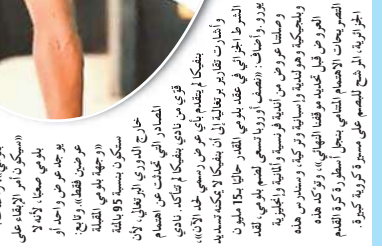 «سيكون أمر الإبقاء على
بلومي صعبا، لأنه لا
يوجد عرض واحد أو
عرضين فقط»، وتابع:
«وجهة بلومي المقبلة
ستكون بنسبة 95 بالمئة
خارج الدوري البرتغالي، لأن
المصادر التي تحدثت عن اهتمام
قوي من نادي بنفيكا لم تتأكد. نادي
بنفيكا لم يتقدم بأي عرض رسمي لحد الآن»،
وأشارت تقارير برتغالية إلى أن بنفيكا لا يمكنه تسديد
الشرط الجزائي في عقد بلومي المقدر حاليا بـ15 مليون
يورو. وأضاف: «نصف أوروبا تسعى لضم بلومي، لقد
وصلتنا عروض من أندية فرنسية وألمانية وإنجليزية
وبلجيكية وهولندية وإسبانية وتركية، وسندرس هذه
العروض قبل تحديد موقفنا النهائي»، وتؤكد هذه
التصريحات الاهتمام المتنامي بنجل أسطورة كرة القدم
الجزائرية، المرشح للبصم على مسيرة كروية كبيرة